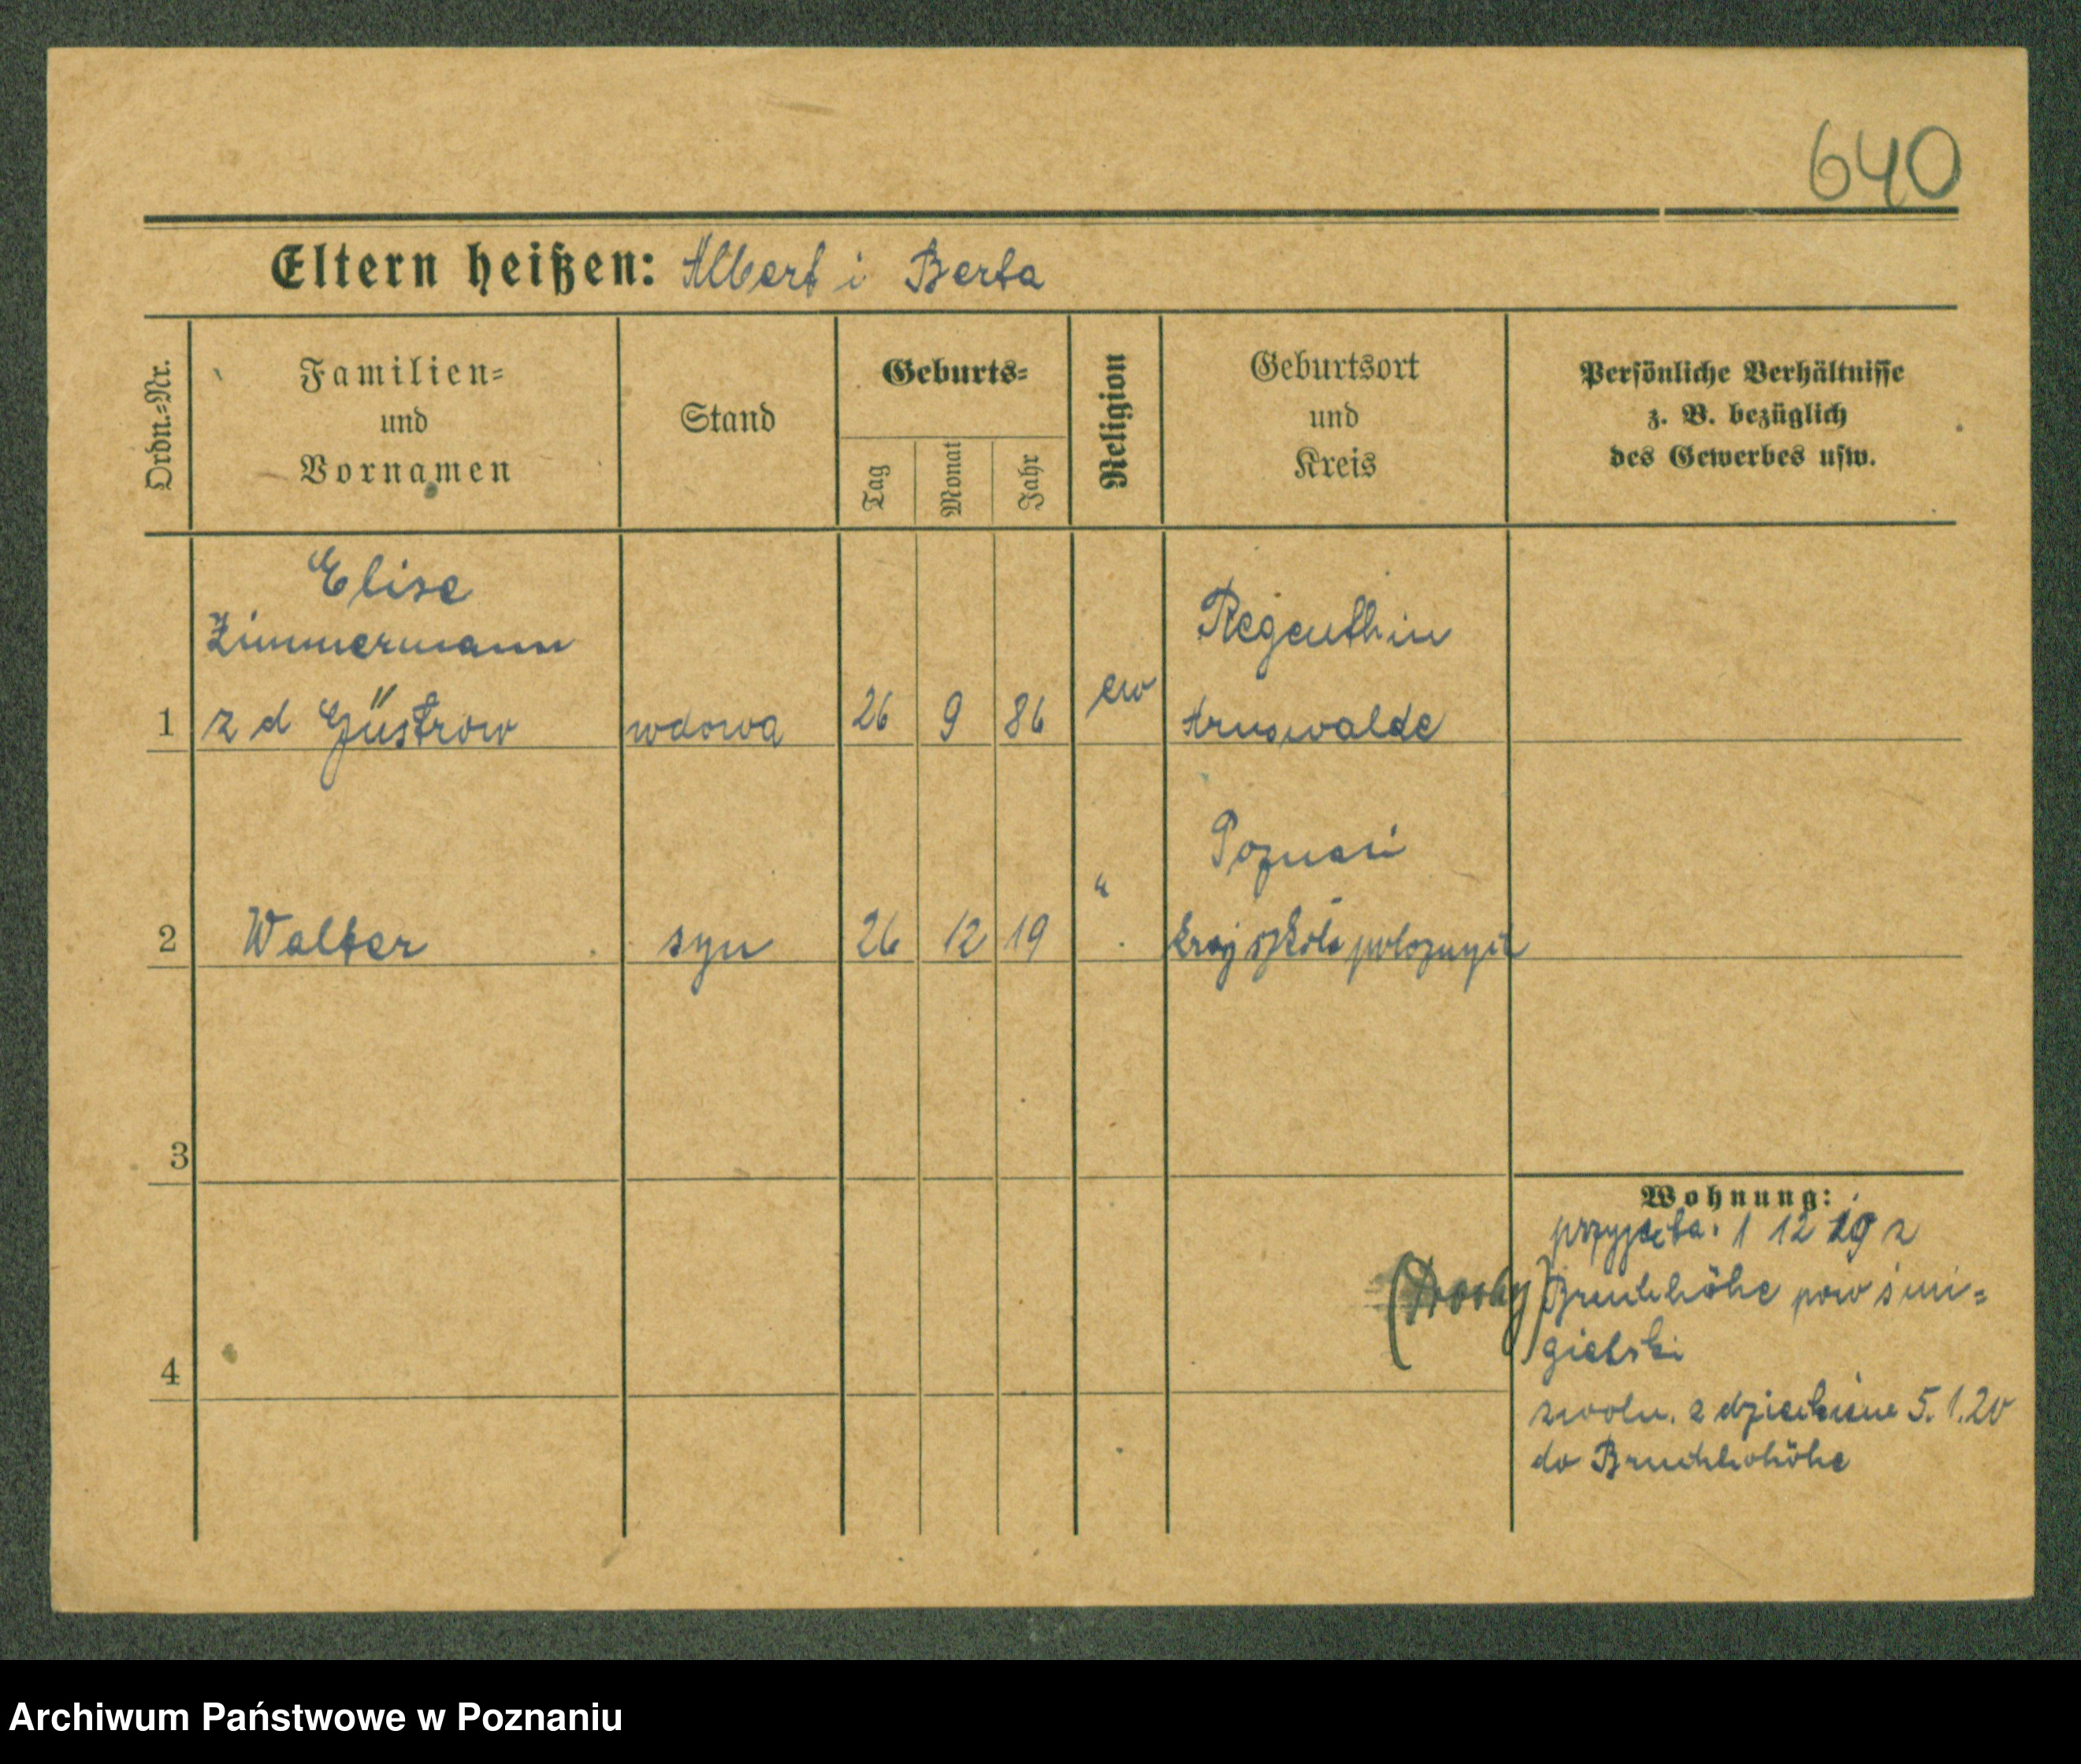 640
Eltern heißen: Albert i Berta
Ordn.-Nr.
Familien-
und
Vornamen
Stand
Geburts-
Tag
Monat
Jahr
Religion
Geburtsort
und
Kreis
Persönliche Verhältnisse
z. B. bezüglich
des Gewerbes usw.
Elise
Zimmermann
1 z d Güstrow wdowa 26 9 86 ew
Regenthin
Arnswalde
Poznań
2 Walter syn 26 12 19 "
kraj szkoła położnych
3
Wohnung:
przyjęta. 1 12 19 z
Bruchhöhe pow śmi-
gielski
4
zwoln. z dzieckiem 5. 1. 20
do Bruchhohöhe
Archiwum Państwowe w Poznaniu